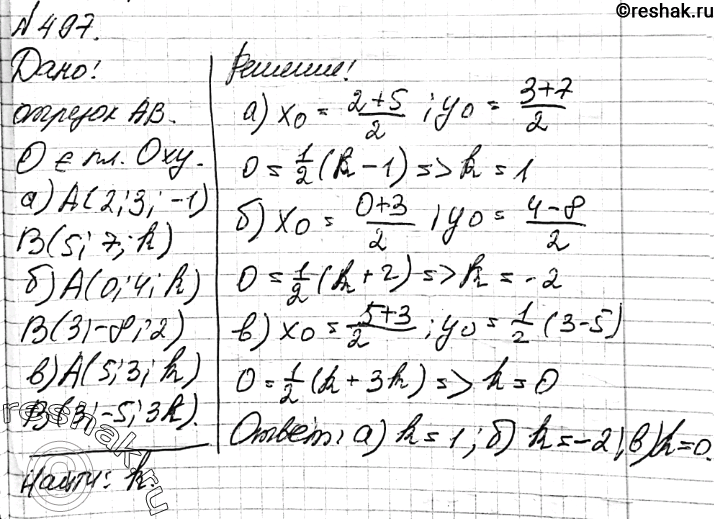 ©reshak.ru
№ 497.
Дано:
отрезок AB.
O ∈ пл. Oxy.
а) A(2; 3; -1)
B(5; 7; k)
б) A(0; 4; k)
B(3; -8; 2)
в) A(5; 3; k)
B(3; -5; 3k).
Найти: k.
Решение:
а) x0 = (2+5)/2 ; y0 = (3+7)/2
0 = 1/2 (k - 1) => k = 1
б) x0 = (0+3)/2 ; y0 = (4-8)/2
0 = 1/2 (k + 2) => k = -2
в) x0 = (5+3)/2 ; y0 = 1/2 (3-5)
0 = 1/2 (k + 3k) => k = 0
Ответ: а) k = 1; б) k = -2; в) k = 0.
reshak.ru